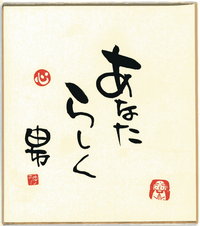 あなた
らしく
心